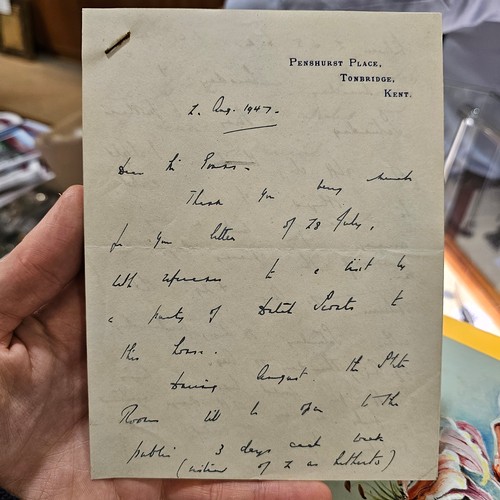 PENSHURST PLACE,
TONBRIDGE,
KENT.
2. Aug. 1947.
Dear Mr
Thank you very much
for your letter of 28 July,
with reference to a visit by
a party of Dutch Scouts to
this house.
During August the State
Rooms will be open to the
public 3 days each week
(instead of 2 as hitherto)